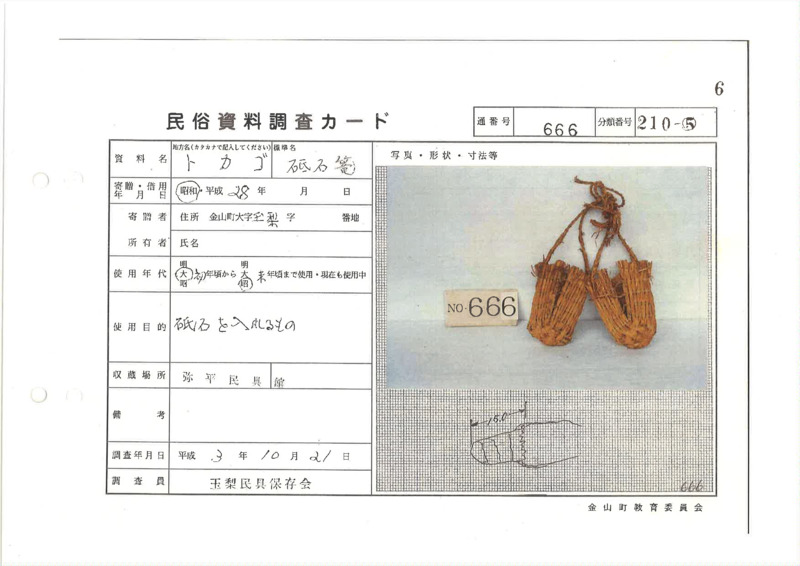 6
民俗資料調査カード
通番号 666 分類番号 210-⑤
資料名
地方名(カタカナで記入してください)
トカゴ
標準名
砥石篭
写真・形状・寸法等
寄贈・借用年月日 昭和・平成 28年 月 日
寄贈者 住所 金山町大字玉梨字 番地
所有者 氏名
使用年代 明大昭 初年頃から 明大昭 末年頃まで使用・現在も使用中
使用目的 砥石を入れるもの
収蔵場所 弥平民具館
備考
調査年月日 平成 3年 10月 21日
調査員 玉梨民具保存会
NO.666
16.0
666
金山町教育委員会